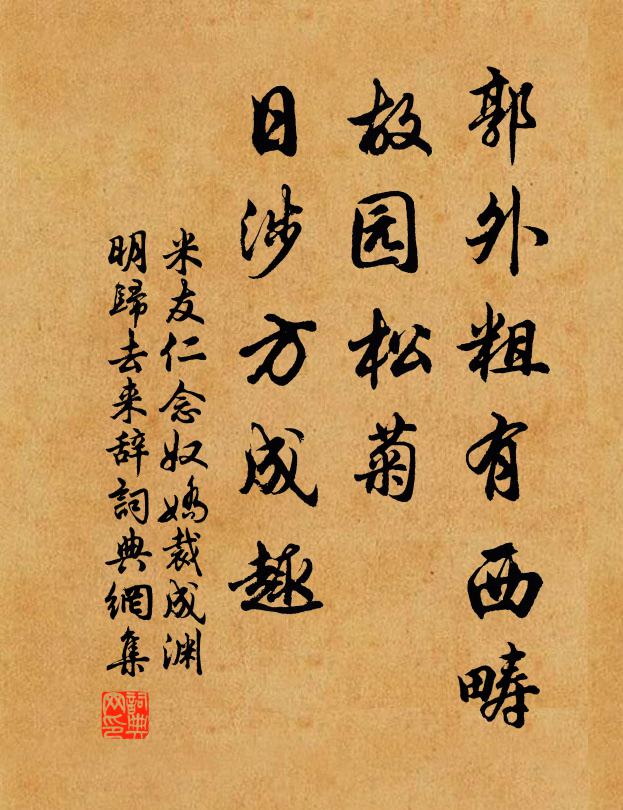 郭外粗有西畴
故园松菊
日涉方成趣
米友仁念奴娇裁成渊
明歸去来辞詞典網集
詞典
网印